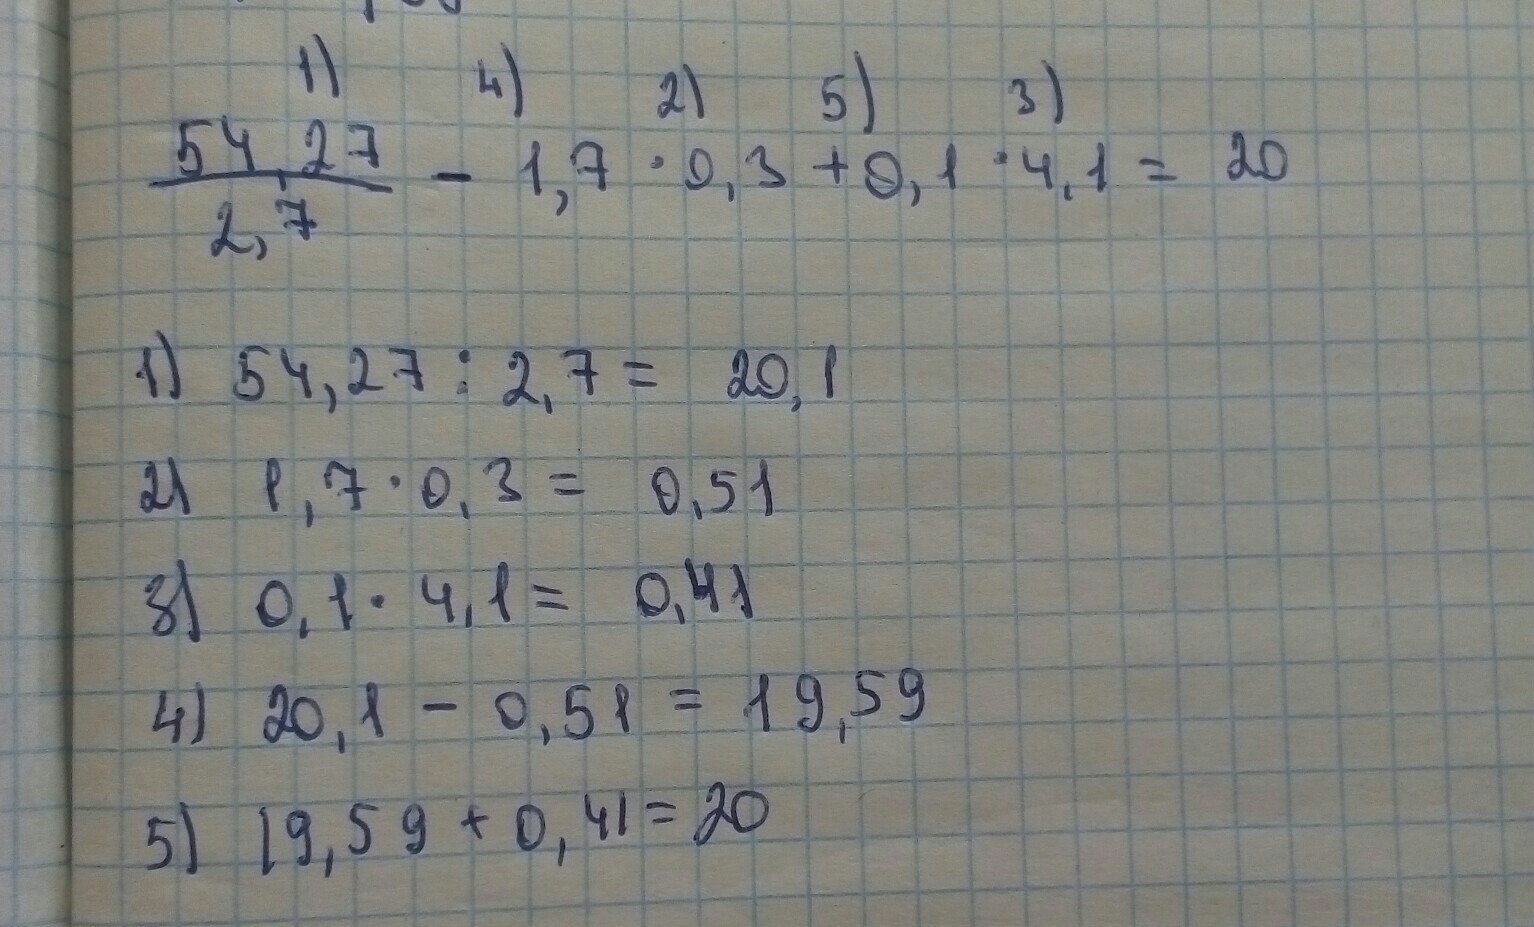 1) 4) 2) 5) 3)
54,27 / 2,7 - 1,7 · 0,3 + 0,1 · 4,1 = 20
1) 54,27 : 2,7 = 20,1
2) 1,7 · 0,3 = 0,51
3) 0,1 · 4,1 = 0,41
4) 20,1 - 0,51 = 19,59
5) 19,59 + 0,41 = 20